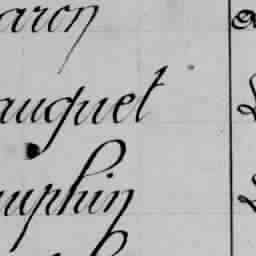 aron
auquet
auphin